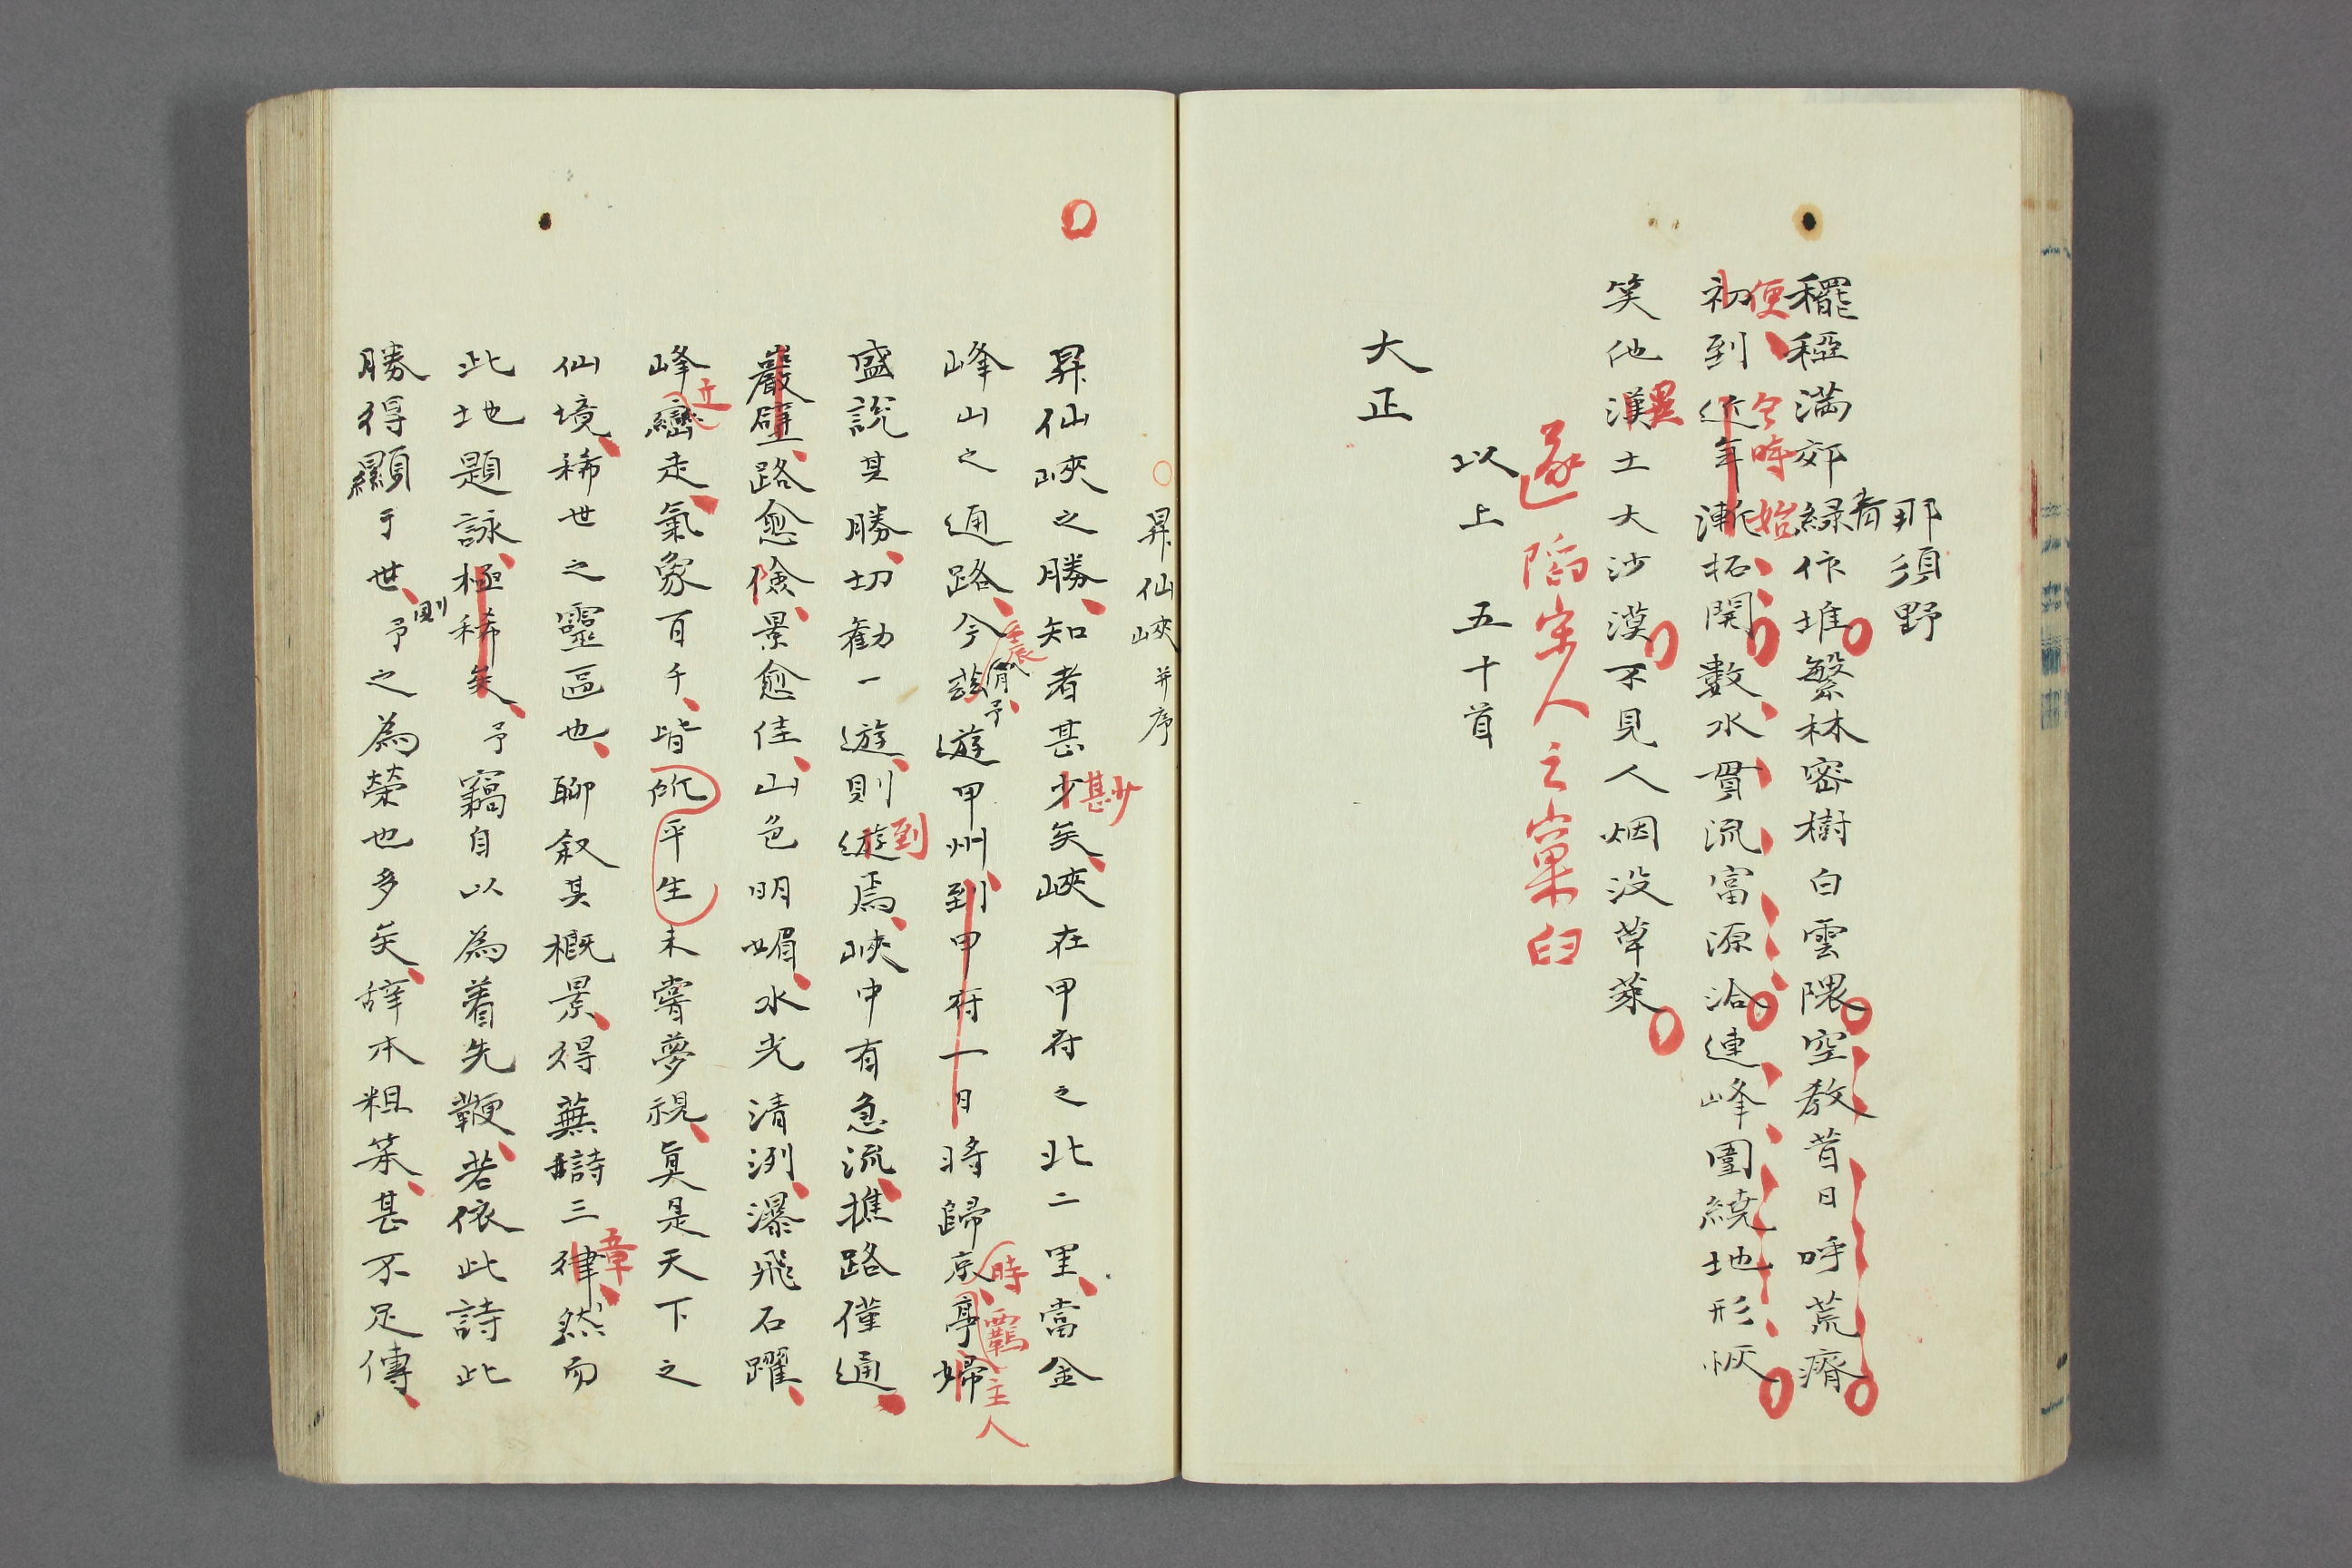 那須野
穲稏満郊緑作堆繁林密樹白雲隈空教昔日呼荒瘠
青
便
今時始
初到近年漸拓開數水貫流富源洽連峰圍繞地形恢
異
笑他漢土大沙漠不見人烟没草萊
遂陷宋人之窠臼
以上 五十首
大正
○昇仙峽并序
昇仙峽之勝知者甚少矣峽在甲府之北二里當金
甚少
峰山之通路今茲遊甲州到甲府一日將歸京亭婦
壬辰
予
時羈主人
盛說其勝切勸一遊則遊焉峽中有急流樵路僅通
到
巖壁路愈儉景愈佳山色明媚水光清洌瀑飛石躍
峰巒走氣象百千皆所平生未嘗夢視眞是天下之
仙境稀世之靈區也聊叙其概景得蕪詩三律然而
章
此地題詠極稀矣予竊自以為着先鞭若依此詩此
勝得顯于世予之為榮也多矣辞本粗笨甚不足傳
則